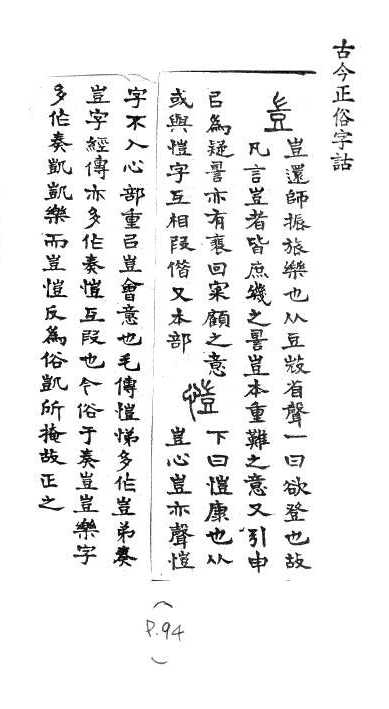 古今正俗字詁
豈
豈還師振旅樂也从豆𢼸省聲一曰欲登也故
凡言豈者皆庶幾之䛐豈本重難之意又引申
㠯為疑䛐亦有裵回宷顧之意
或與愷字互相叚借又本部
愷
下曰愷康也从
豈心豈亦聲愷
字不入心部重㠯豈會意也毛傳愷悌多作豈弟奏
豈字經傳亦多作奏愷互叚也今俗于奏豈豈樂字
多作奏凱凱樂而豈愷反為俗凱所掩故正之
(P.94)